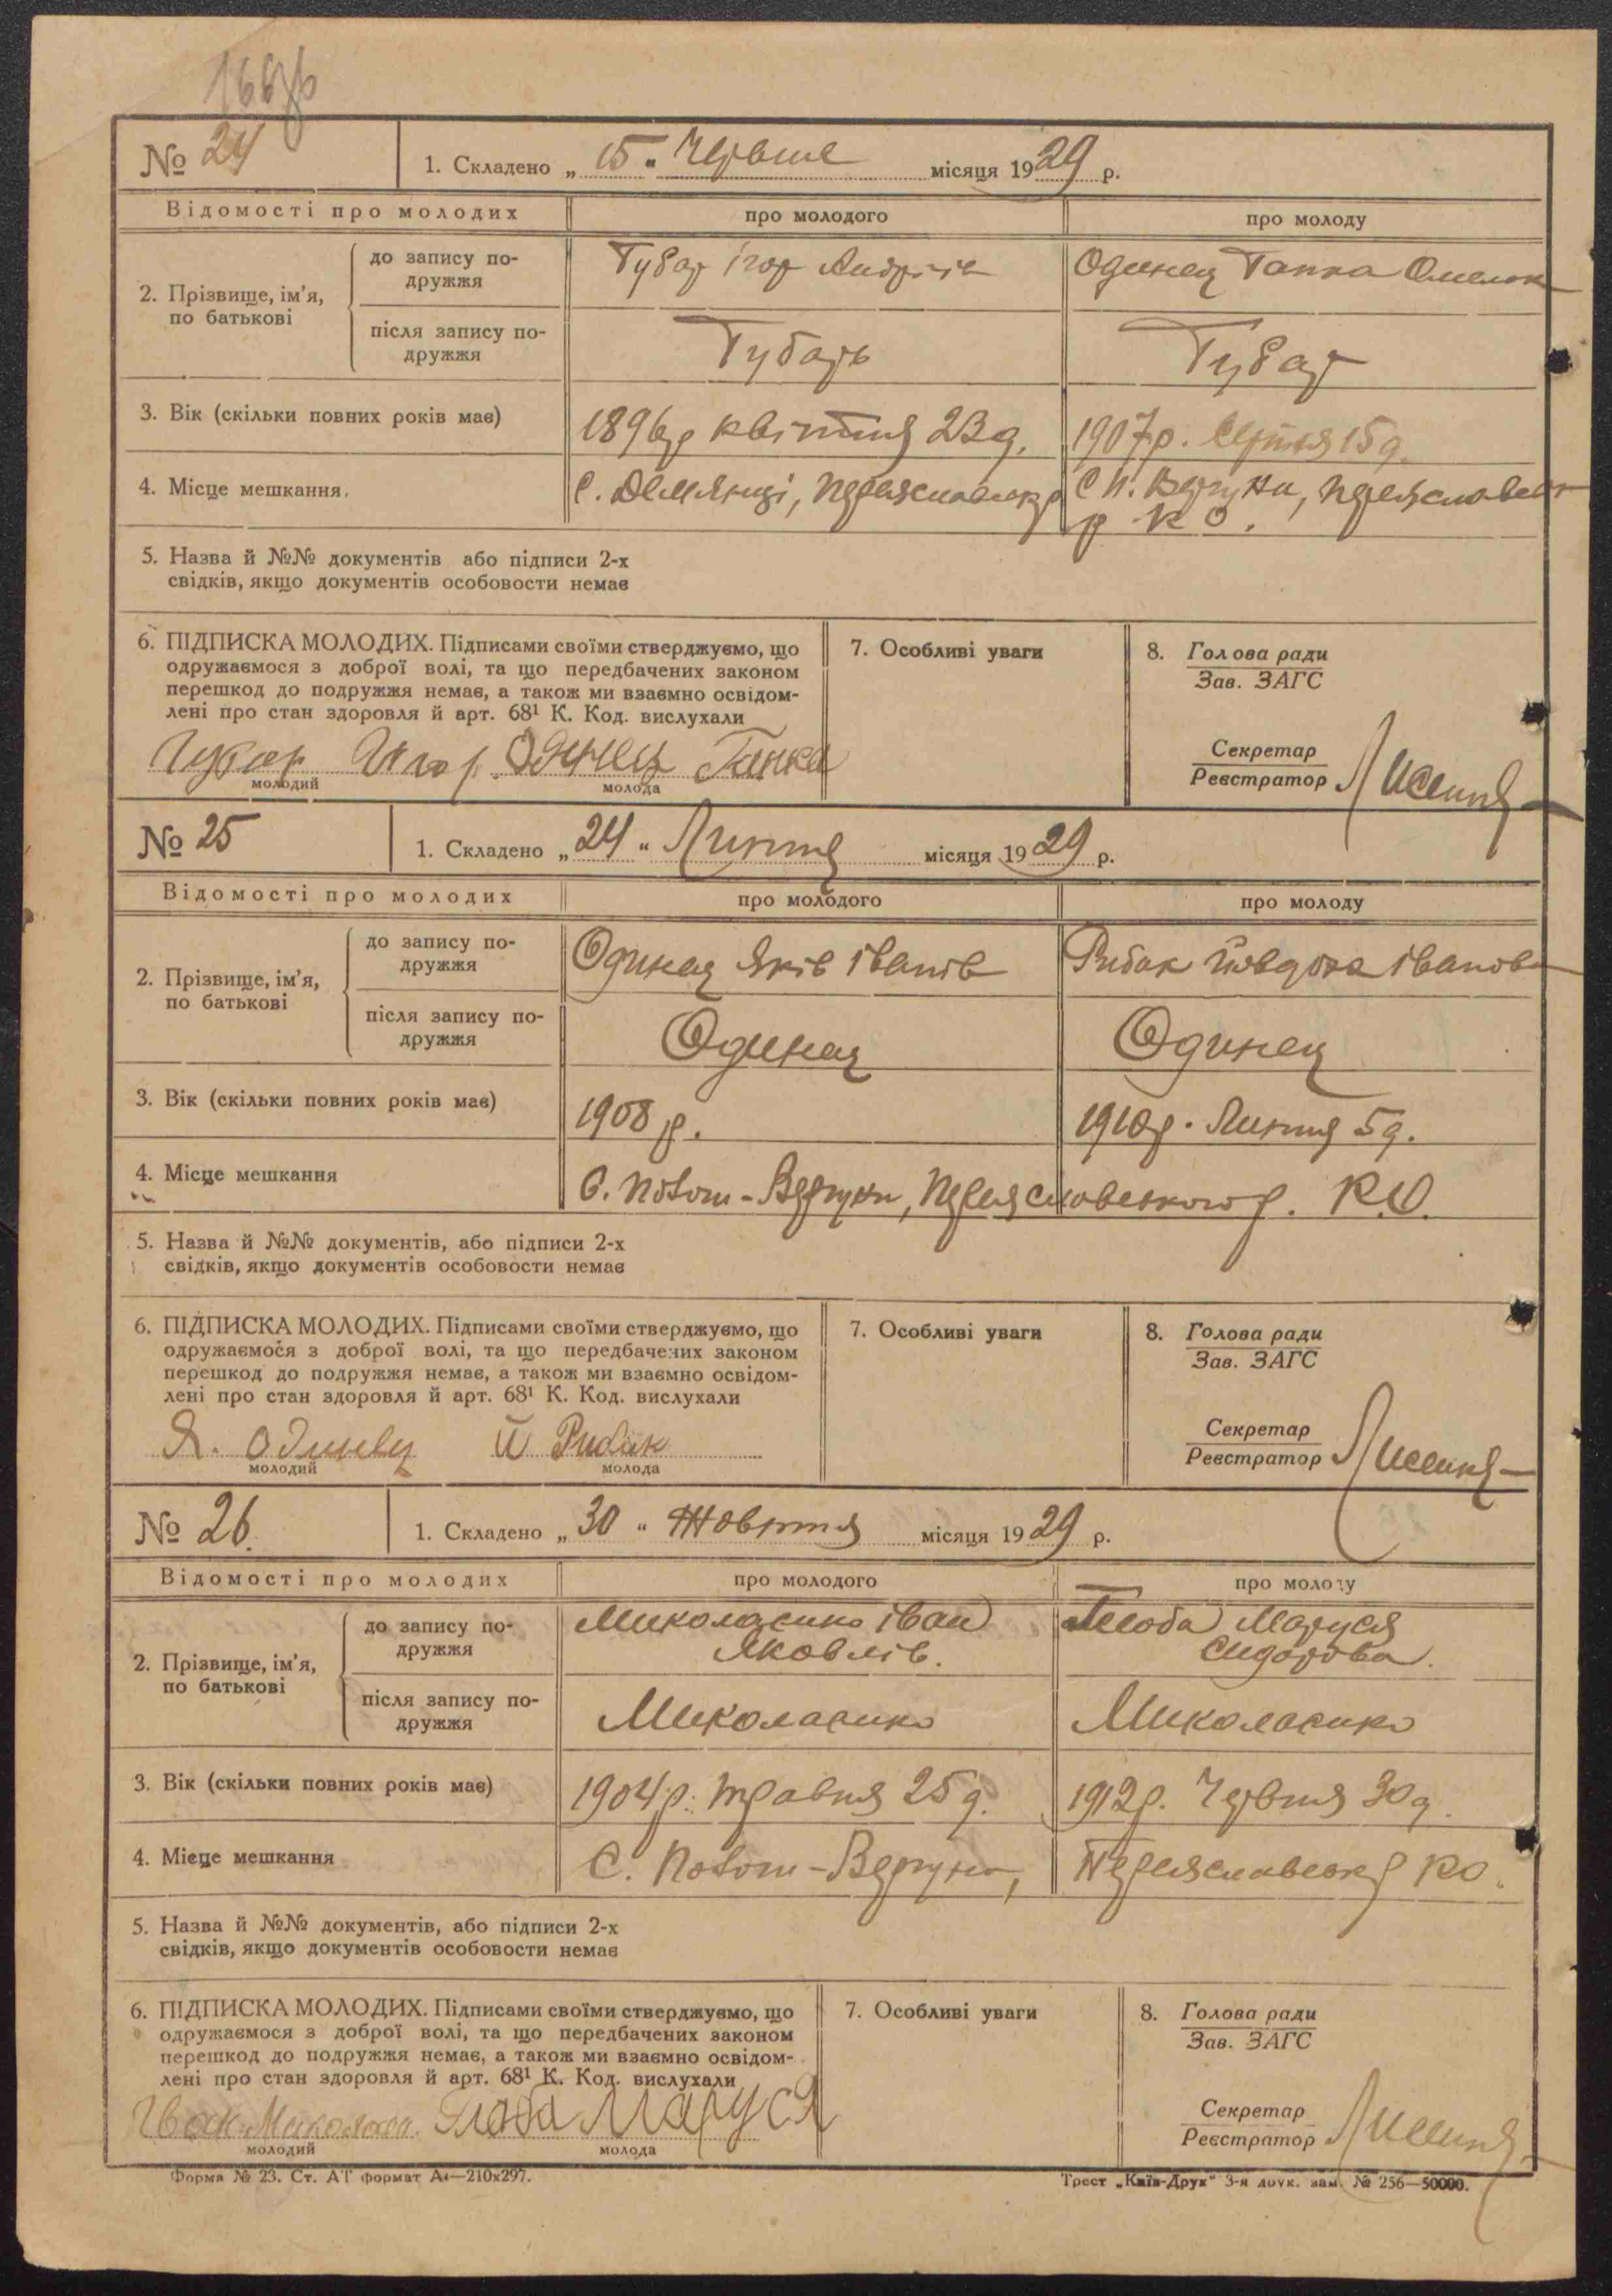 № 24
1. Складено „ 15 “ Червня місяця 1929 р.
Відомості про молодих
про молодого
про молоду
2. Прізвище, ім’я, по батькові
до запису подружжя
Губар Ігор Андріїв
Одинец Ганна Омелок
після запису подружжя
Губарь
Губар
3. Вік (скільки повних років має)
1896р квітня 23 д.
1907р. Серпня 15 д.
4. Місце мешкання
С. Демлянці, Переяславськ р
С П. Вергуни, Переяславськ
р К О.
5. Назва й №№ документів або підписи 2-х
свідків, якщо документів особовости немає
6. ПІДПИСКА МОЛОДИХ. Підписами своїми стверджуємо, що
одружаємося з доброї волі, та що передбачених законом
перешкод до подружжя немає, а також ми взаємно освідом-
лені про стан здоровля й арт. 68¹ К. Код. вислухали
Губар Игор. Одинец Ганна
молодий
молода
7. Особливі уваги
8. Голова ради
Зав. ЗАГС
Секретар
Реєстратор
№ 25
1. Складено „ 24 “ Липня місяця 1929 р.
Відомості про молодих
про молодого
про молоду
2. Прізвище, ім’я, по батькові
до запису подружжя
Одинец Яків Іванів
Рибак Йовдоха Іванова
після запису подружжя
Одинец
Одинец
3. Вік (скільки повних років має)
1908 р.
1910р. Липня 5 д.
4. Місце мешкання
С. Полог-Вергуни, Переяславського р. К.О.
5. Назва й №№ документів, або підписи 2-х
свідків, якщо документів особовости немає
6. ПІДПИСКА МОЛОДИХ. Підписами своїми стверджуємо, що
одружаємося з доброї волі, та що передбачених законом
перешкод до подружжя немає, а також ми взаємно освідом-
лені про стан здоровля й арт. 68¹ К. Код. вислухали
Я. Одинец Й Рибак
молодий
молода
7. Особливі уваги
8. Голова ради
Зав. ЗАГС
Секретар
Реєстратор
№ 26.
1. Складено „ 30 “ Жовтня місяця 1929 р.
Відомості про молодих
про молодого
про молоду
2. Прізвище, ім’я, по батькові
до запису подружжя
Миколаєнко Іван
Яковлів.
Глоба Маруся
Сидорова.
після запису подружжя
Миколаєнко
Миколаєнко
3. Вік (скільки повних років має)
1904р. травня 25 д.
1912р. Червня 30 д.
4. Місце мешкання
С. Полог-Вергуни, Переяславськ р КО.
5. Назва й №№ документів, або підписи 2-х
свідків, якщо документів особовости немає
6. ПІДПИСКА МОЛОДИХ. Підписами своїми стверджуємо, що
одружаємося з доброї волі, та що передбачених законом
перешкод до подружжя немає, а також ми взаємно освідом-
лені про стан здоровля й арт. 68¹ К. Код. вислухали
Глоба Маруся
молодий
молода
7. Особливі уваги
8. Голова ради
Зав. ЗАГС
Секретар
Реєстратор
Форма № 23. Ст. АТ формат А4—210х297.
Трест „Київ-Друк“ 3-я друк. зам. № 256—50000.